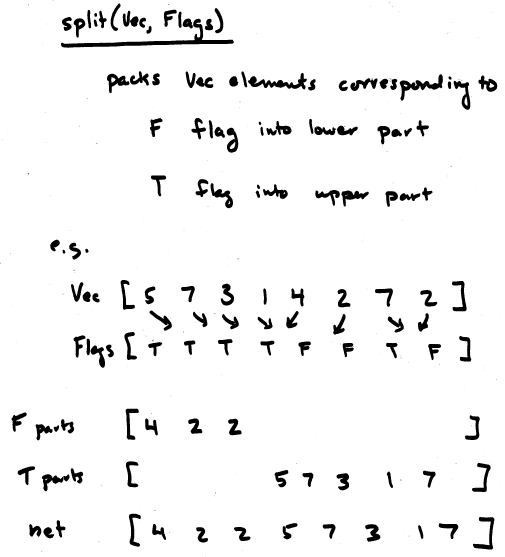 split(Vec, Flags)
packs Vec elements corresponding to
F flag into lower part
T flag into upper part
e.g.
Vec [ 5 7 3 1 4 2 7 2 ]
Flags [ T T T T F F T F ]
F parts [ 4 2 2 ]
T parts [ 5 7 3 1 7 ]
net [ 4 2 2 5 7 3 1 7 ]